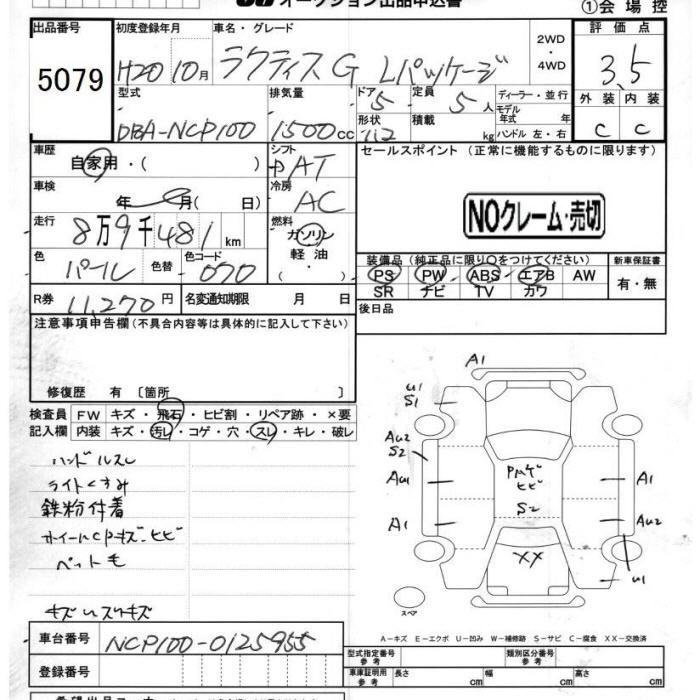 オークション出品申込書
①会場控
出品番号
初度登録年月
車名・グレード
2WD
・
4WD
評価点
5079
H20 10月
ラクティス G Lパッケージ
3.5
型式
排気量
ドア
定員
ディーラー・並行
外装
内装
DBA-NCP100
1500cc
5
5人
モデル年式 年
C
C
形状
積載
kg
ハンドル 左・右
車歴
自家用・( )
シフト
AT
セールスポイント (正常に機能するものに限ります)
車検
年 月( 日)
冷房
AC
NOクレーム・売切
走行
8万9千481km
燃料
ガソリン
軽油
・( )
色
パール
色替
色コード
070
装備品(純正品に限り○をつけてください)
新車保証書
PS PW ABS エアB AW
有・無
SR ナビ TV カワ
R券
11,270円
名変通知期限 月 日
後日品
注意事項申告欄(不具合内容等は具体的に記入して下さい)
修復歴 有 〔箇所 〕
検査員
記入欄
FW キズ・飛石・ヒビ割・リペア跡・×要
内装 キズ・汚レ・コゲ・穴・スレ・キレ・破レ
ハンドルスレ
ライトくすみ
鉄粉付着
ホイールCPキズ・ヒビ
ペット毛
A1
U1
S1
AU2
S2
AU1
A1
A1
AU2
U1
S2
XX
スペア
A-キズ E-エクボ U-凹み W-補修跡 S-サビ C-腐食 XX-交換済
車台番号
NCP100-0125955
登録番号
型式指定番号
参考
類別区分番号
参考
車庫証明用
参考
長さ cm
幅 cm
高さ cm